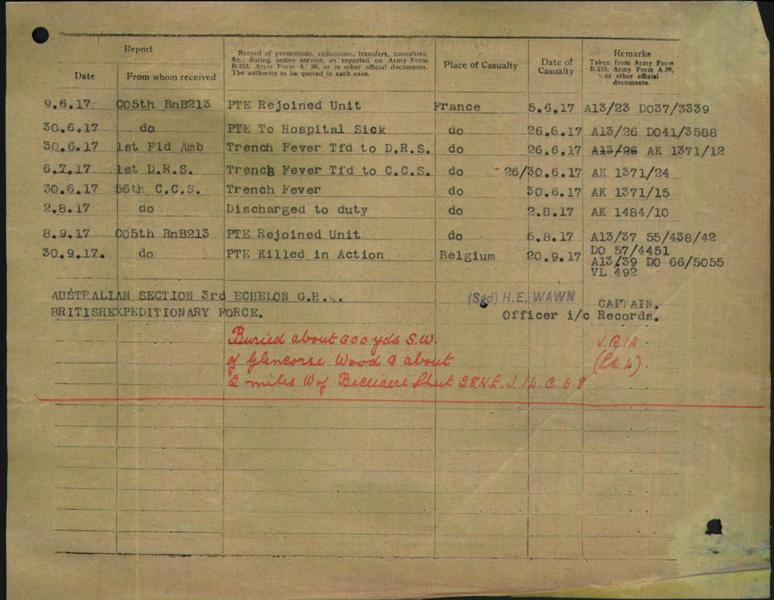 Report
Record of promotions, reductions, transfers, casualties, &c., during active service, as reported on Army Form B.213, Army Form A. 36, or in other official documents. The authority to be quoted in each case.
Place of Casualty
Date of Casualty
Remarks
Taken from Army Form B.213, Army Form A.36, or other official documents.
Date From whom received
9.6.17 CO5th BnB213 PTE Rejoined Unit France 5.6.17 A13/23 DO37/3339
30.6.17 do PTE To Hospital Sick do 26.6.17 A13/26 DO41/3588
30.6.17 1st Fld Amb Trench Fever Tfd to D.R.S. do 26.6.17 A13/26 AK 1371/12
6.7.17 1st D.R.S. Trench Fever Tfd to C.C.S. do 26/30.6.17 AK 1371/24
30.6.17 56th C.C.S. Trench Fever do 30.6.17 AK 1371/15
2.8.17 do Discharged to duty do 2.8.17 AK 1484/10
8.9.17 CO5th BnB213 PTE Rejoined Unit do 6.8.17 A13/37 55/438/42
DO 57/4451
30.9.17. do PTE Killed in Action Belgium 20.9.17 A13/39 DO 66/5055
VL 492
AUSTRALIAN SECTION 3rd ECHELON G.H.Q. (Sgd) H.E. WAWN CAPTAIN.
BRITISHEXPEDITIONARY FORCE. Officer i/c Records.
Buried about 300 yds S.W.
of Glencorse Wood & about
2 miles W of Becelaere Sheet 28 N.E. J. 14. C. 6.8